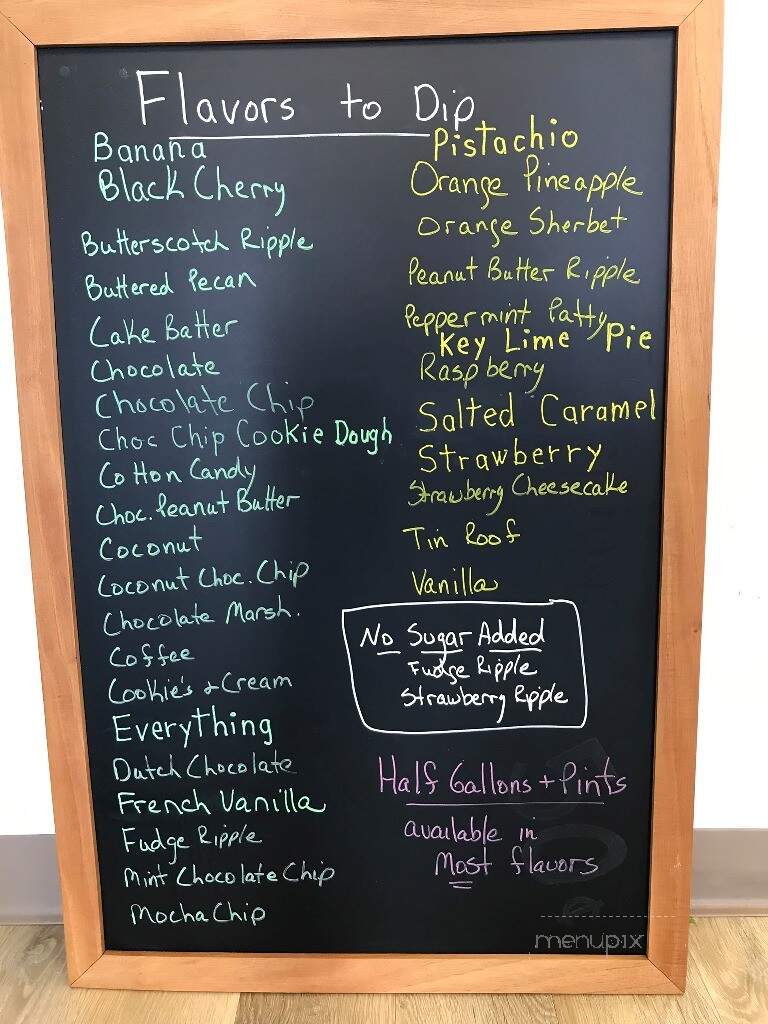 Flavors to Dip
Banana
Black Cherry
Butterscotch Ripple
Buttered Pecan
Cake Batter
Chocolate
Chocolate Chip
Choc Chip Cookie Dough
Cotton Candy
Choc. Peanut Butter
Coconut
Coconut Choc. Chip
Chocolate Marsh.
Coffee
Cookie's + Cream
Everything
Dutch Chocolate
French Vanilla
Fudge Ripple
Mint Chocolate Chip
Mocha Chip
Pistachio
Orange Pineapple
Orange Sherbet
Peanut Butter Ripple
Peppermint Patty
Key Lime Pie
Raspberry
Salted Caramel
Strawberry
Strawberry Cheesecake
Tin Roof
Vanilla
No Sugar Added
Fudge Ripple
Strawberry Ripple
Half Gallons + Pints
available in
Most flavors
menupix